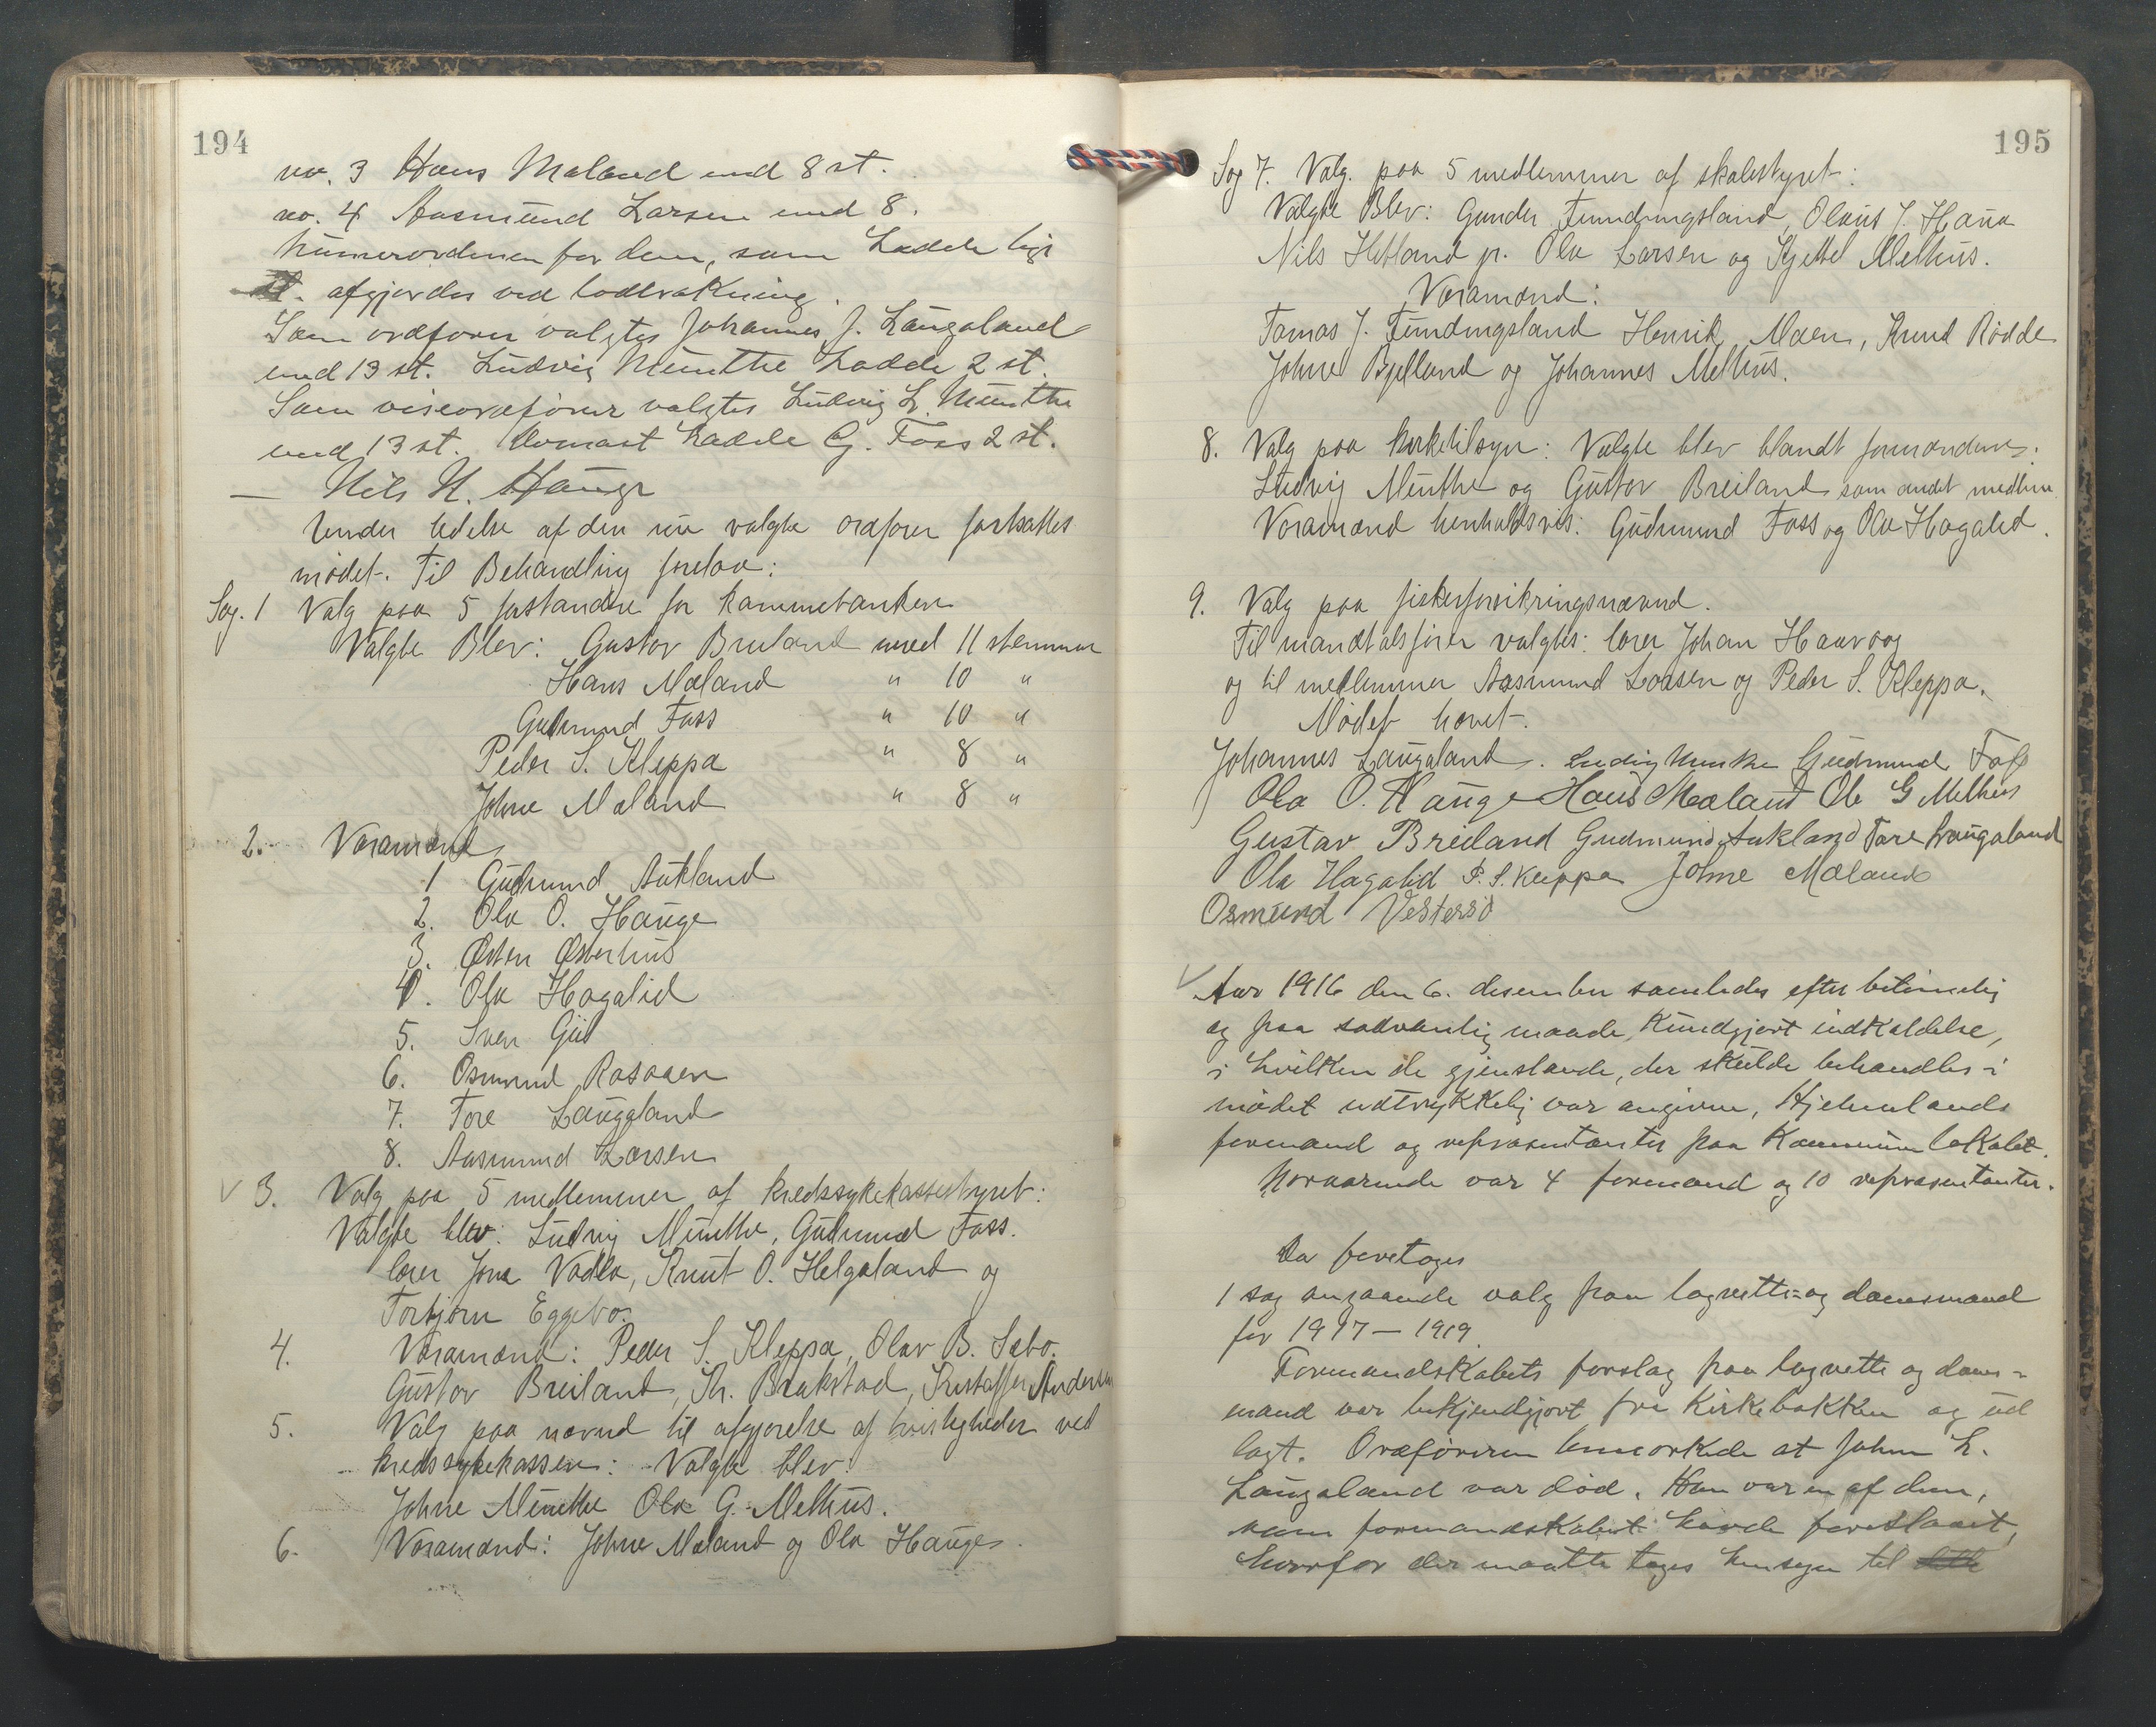 194
no. 3 Hans Mæland med 8 st.
no. 4 Aasmund Larsen med 8.
Numerordenen for dem, som hadde lige
st. afgjordes ved lodtrækning.
Som ordfører valgtes Johannes J. Laugaland
med 13 st. Ludvig Munthe hadde 2 st.
Som viseordfører valgtes Ludvig L. Munthe
med 13 st. Hernæst hadde G. Foss 2 st.
Nils N. Hauge
Under ledelse af den nu valgte ordfører fortsattes
mødet. Til Behandling foretoes:
Sag. 1 Valg paa 5 forstandere for kommebanken
Valgte Blev: Gustav Breiland med 11 stemmer
Hans Mæland " 10 "
Gudmund Foss " 10 "
Peder S. Kleppa " 8 "
Johne Mæland " 8 "
2. Varamænd
1 Gudmund Aukland
2. Ola O. Hauge
3. Østen Østerhus
4. Ola Hagalid
5. Sven Gil
6. Osmund Rosaaen
7. Tore Laugaland
8. Aasmund Larsen
3. Valg paa 5 medlemmer af kredssykekassestyret:
Valgte blev: Ludvig Munthe, Gudmund Foss.
lærer Jone Vadla, Knut O. Helgaland og
Torbjørn Eggebø.
4. Varamænd: Peder S. Kleppa, Olav B. Sæbø.
Gustav Breiland, Kr. Brakstad, Kristoffer Andersen
5. Valg paa nævnd til afgjørelse af tvistigheder ved
kredssykekassen: Valgte blev:
Johne Munthe Ola G. Melhus.
6. Varamænd: Johne Mæland og Ola Hauge.
195
Sag 7. Valg paa 5 medlemmer af skolestyret:
Valgte Blev: Gunder Fundingsland, Olaus J. Haua
Nils Hetland jr. Ola Larsen og Kjettel Melhus.
Varamænd:
Tomas J. Fundingsland Henrik Moen, Knud Rødde
Johne Bjelland og Johannes Melhus.
8. Valg paa kirketilsyn: Valgte blev blandt formændene:
Ludvig Munthe og Gustav Breiland som andet medlem
Varamænd henholdsvis: Gudmund Foss og Ola Hagalid.
9. Valg paa fiskerforsikringsnævnd.
Til mandtalsfører valgtes: lærer Johan Haavaag
og til medlemmer Aasmund Larsen og Peder S. Kleppa.
Mødet hævet.
Johannes Laugaland. Ludvig Munthe Gudmund Foss
Ola O. Hauge Hans Mæland Ole G Melhus
Gustav Breiland Gudmund Aukland Tore Laugaland
Ola Hagalid P. S. Kleppa Johne Mæland
Osmund Vestersø
Aar 1916 den 6. desember samledes efter betimelig
og paa sedvanlig maade kundgjort indkaldelse,
i hvilken de gjenstande, der skulde behandles i
mødet udtrykkelig var angivne, Hjelmelands
formænd og repræsentanter paa Kommunelokalet.
Nærværende var 4 formænd og 10 repræsentanter.
Da foretoges
1 sag angaaende valg paa lagrette- og domsmænd
for 1917 – 1919.
Formandskabets forslag paa lagrette og doms-
mænd var bekjendtgjort fra Kirkebakken og ud
lagt. Ordføreren bemerkede at Johne L.
Laugaland var død. Han var en af dem,
som formandskabet havde foreslaaet,
hvorfor der maatte tages hensyn til